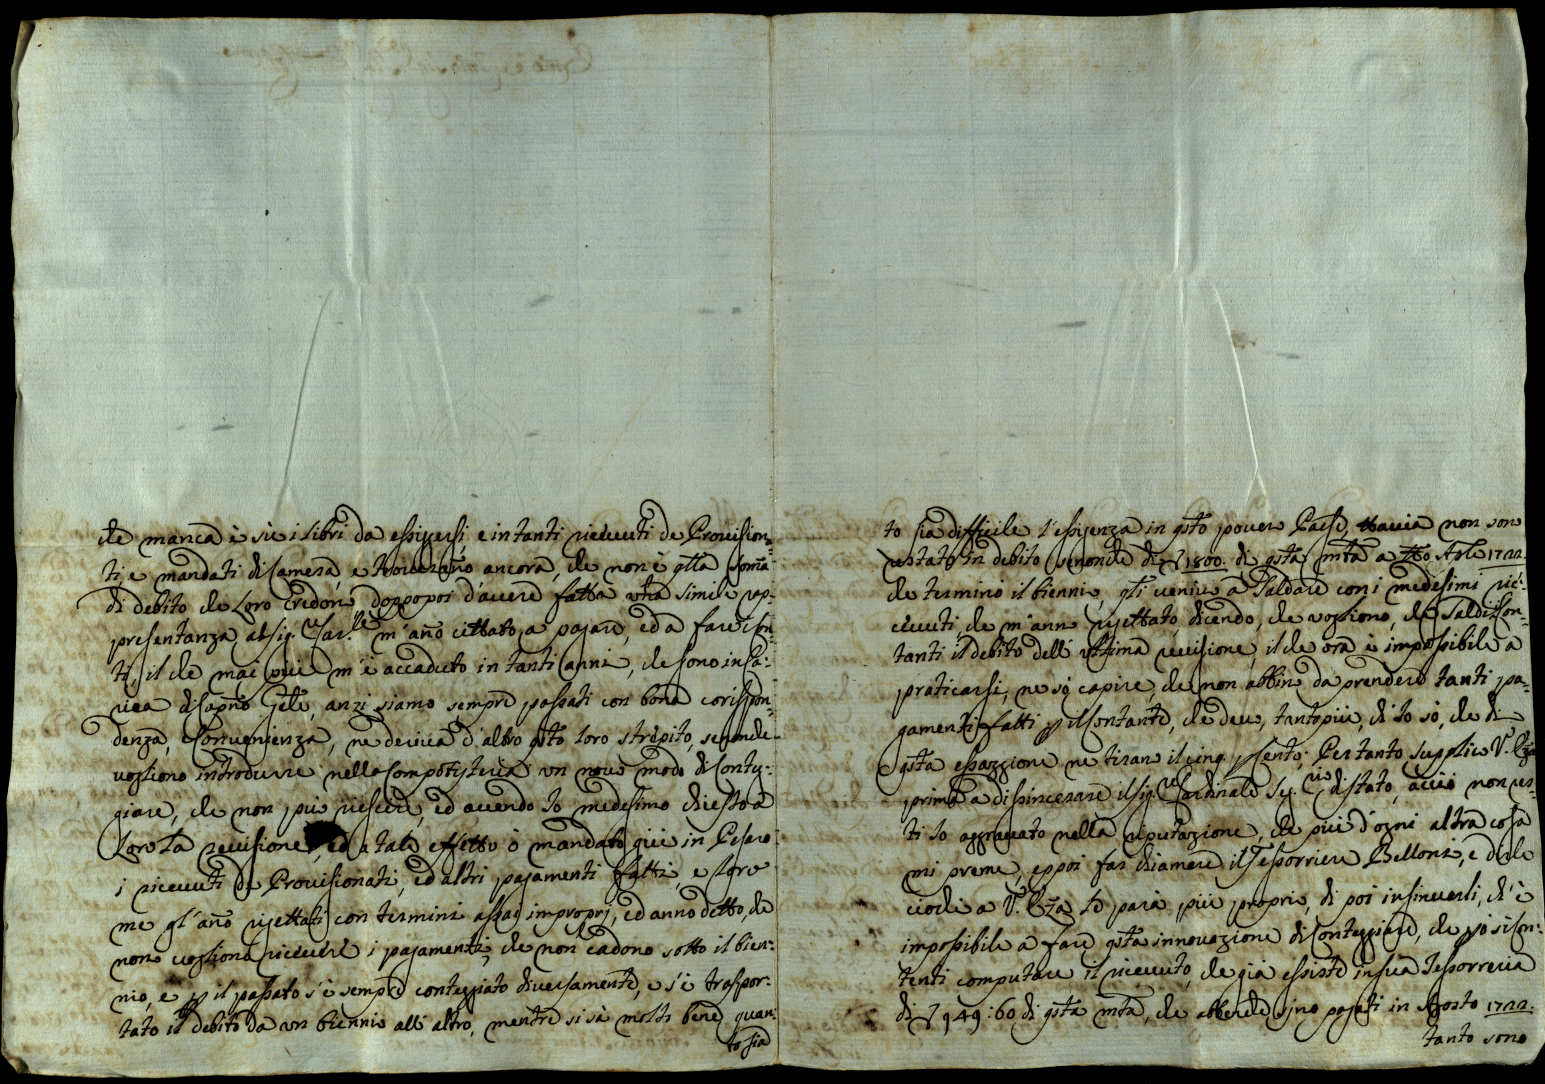 che manca è sù i libri da essiggersi e in tanti ricevuti de Provision=
ti, e mandati di Camera, e troveranno ancora, che non è qlla somma
di debito che loro credono, doppo poi d'avere fatta una simile rap=
presentanza al Sig.r Car.le m'ano cittato, a pagare, ed a fare i con=
ti, il che mai più m'è accaduto in tanti anni, che sono in ca=
rica anzi siamo sempre passati con bona corispon=
denza, e convenienza, ne deriva d'altro qsto loro strepito, se non che
vogliono introdurre nella Compotisteria un novo modo di conteg=
giare, che non può riescire, ed avendo Io medesimo chiesto a
Loro la revisione, ed a tale effetto ò mandato quì in Pesaro
i ricevuti de Provisionati, ed altri pagamenti fatti, e loro
me gl'ano rigettati con termini assai improprj, ed anno detto, che
non vogliono ricevere i pagamenti, che non cadono sotto il bien=
nio, e p il passato s'è sempre conteggiato diversamente, e s'è traspor=
tato il debito da un biennio all'altro, mentre si sà molto bene quan=
to sia
to sia difficile l'essigenza in qsto povero Paese, non sono
restato in debito se non che di 1800. di qsta mta a tto Aple 1722.
che terminò il biennio, qsti veniva a saldare con i medesimi ri=
cevuti, che m'anno rigettato, dicendo, che vogliono, che saldi in con=
tanti il debito dell'ultima revisione, il che ora è impossibile a
praticarsi, ne sò capire, che non abbino da prendere tanti pa=
gamenti fatti p il contante, che devo, tanto più, ch'Io sò, che di
qsta essazzione ne tirano il cinq. p Cento; Pertanto supplico V. Ecza
prima a dissincerare il Sig.r Cardinale Seg.rio di Stato, acciò non res=
ti Io aggravato nella riputazione, che più d'ogni altra cosa
mi preme, e poi far chiamare il Tessorriere Belloni, e dirle
ciò che a V. Ecza le parà più proprio, di poi insinuarli, ch'è
impossibile a fare qsta innovazione di conteggiare, che però si con=
tenti computare il ricevuto, che già essiste in sua Tessorreria
di 1949:60 di qsta mta, che abbenche sino pagati in Agosto 1722.
tanto sono